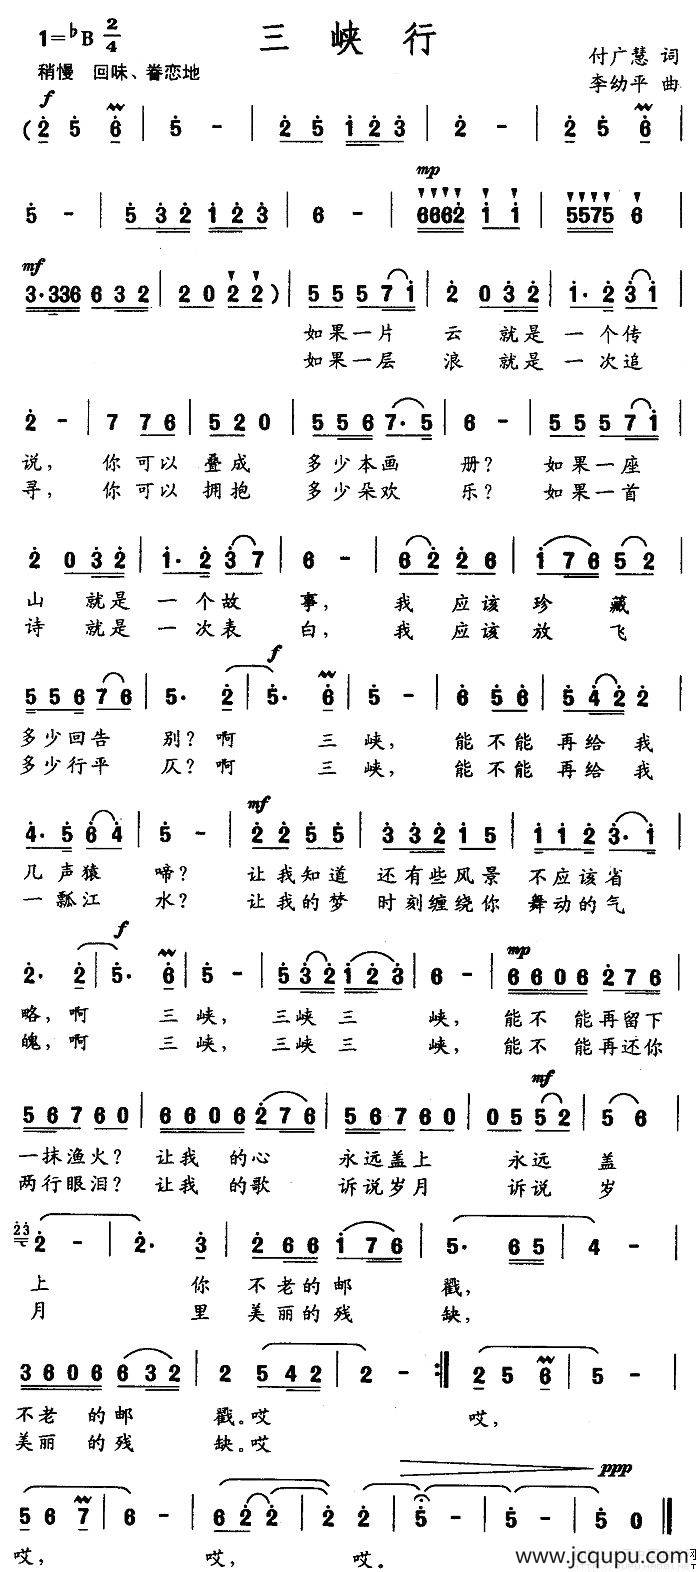 三 峡 行
1=♭B 2/4
付广慧 词
稍慢 回味、眷恋地
李幼平 曲
f
( 2 5 6 | 5 - | 2 5 1 2 3 | 2 - | 2 5 6 |
mp
5 - | 5 3 2 1 2 3 | 6 - | 6662 1 1 | 5575 6 |
mf
3·336 6 3 2 | 2 0 2 2 ) | 5 5 5 7 1 | 2 0 3 2 | 1· 2 3 1 |
如果一片 云 就是 一个传
如果一层 浪 就是 一次追
2 - | 7 7 6 | 5 2 0 | 5 5 6 7· 5 | 6 - | 5 5 5 7 1 |
说， 你可以 叠成 多少本画 册？ 如果一座
寻， 你可以 拥抱 多少朵欢 乐？ 如果一首
2 0 3 2 | 1· 2 3 7 | 6 - | 6 2 2 6 | 1 7 6 5 2 |
山 就是 一个故 事， 我 应该 珍 藏
诗 就是 一次表 白， 我 应该 放 飞
f
5 5 6 7 6 | 5· 2 | 5· 6 | 5 - | 6 5 6 | 5 4 2 2 |
多少回告 别？啊 三 峡， 能不能 再给我
多少行平 仄？啊 三 峡， 能不能 再给我
mf
4· 5 6 4 | 5 - | 2 2 5 5 | 3 3 2 1 5 | 1 1 2 3· 1 |
几声猿 啼？ 让我知道 还有些风景 不应该省
一瓢江 水？ 让我的梦 时刻缠绕你 舞动的气
f mp
2· 2 | 5· 6 | 5 - | 5 3 2 1 2 3 | 6 - | 6 6 0 6 2 7 6 |
略，啊 三 峡， 三峡 三 峡， 能不 能再留下
魄，啊 三 峡， 三峡 三 峡， 能不 能再还你
mf
5 6 7 6 0 | 6 6 0 6 2 7 6 | 5 6 7 6 0 | 0 5 5 5 2 | 5 6 |
一抹渔火？ 让我 的心 永远盖上 永远 盖
两行眼泪？ 让我 的歌 诉说岁月 诉说 岁
23 2 - | 2· 3 | 2 6 6 1 7 6 | 5· 6 5 | 4 - |
上 你 不老的邮 戳，
月 里 美丽的残 缺，
3 6 0 6 6 3 2 | 2 5 4 2 | 2 - :‖ 2 5 6 | 5 - |
不老 的邮 戳。哎 哎，
美丽 的残 缺。哎
ppp
5 6 7 | 6 - | 6 2 2 2 | 2 2 | 5 - | 5 - | 5 0 ‖
哎， 哎， 哎。
www.jcqupu.com